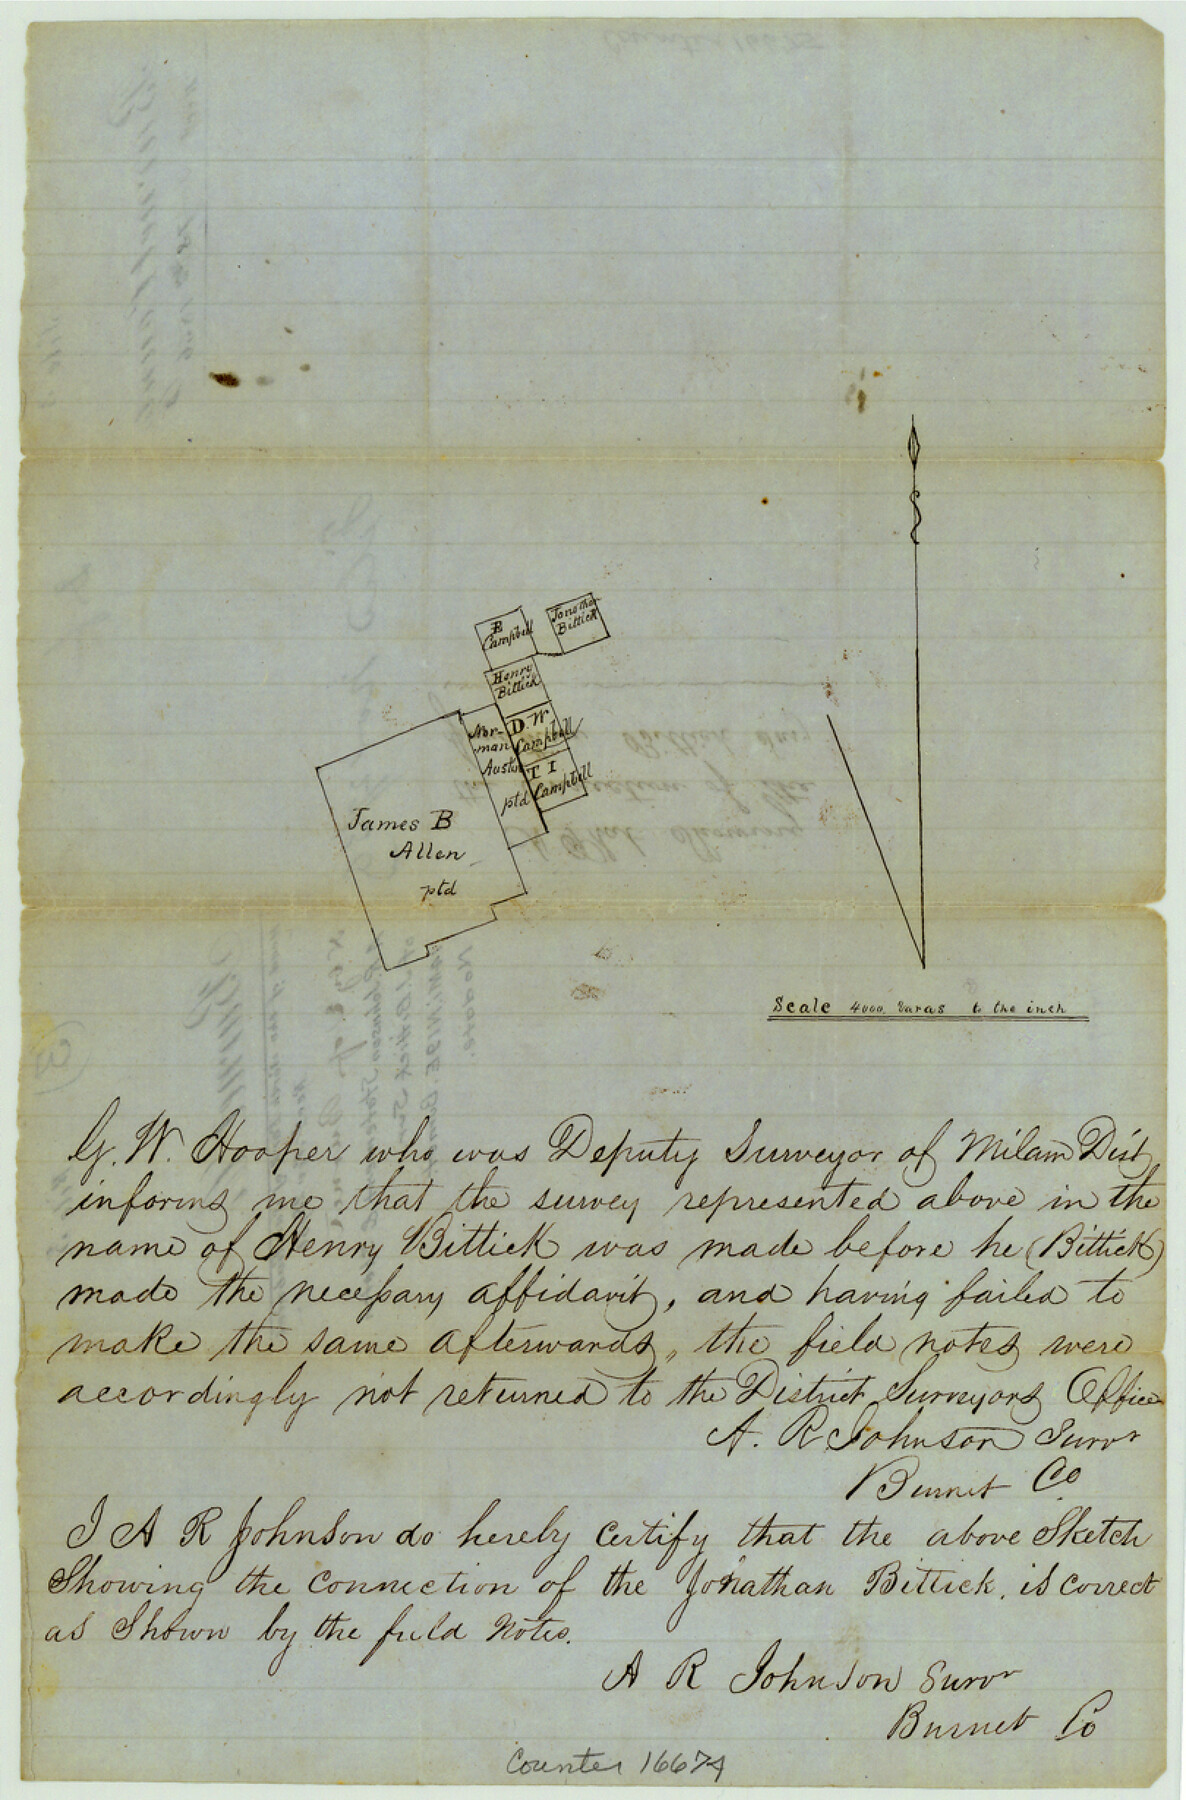 B
Campbell
Jonathan
Bittick
Henry
Bittick
Nor-
man
Austin
ptd
D. W
Campbell
T I
Campbell
James B
Allen
ptd
Scale 4000 varas to the inch
G. W. Hooper who was Deputy Surveyor of Milam Dist
informs me that the survey represented above in the
name of Henry Bittick was made before he (Bittick)
made the necessary affidavit, and having failed to
make the same afterwards, the field notes were
accordingly not returned to the District Surveyors Office
A. R. Johnson Survr
Burnet Co
I A R Johnson do hereby certify that the above Sketch
Showing the connection of the Jonathan Bittick. is correct
as Shown by the field Notes.
A R Johnson Survr
Burnet Co
Counter 16674